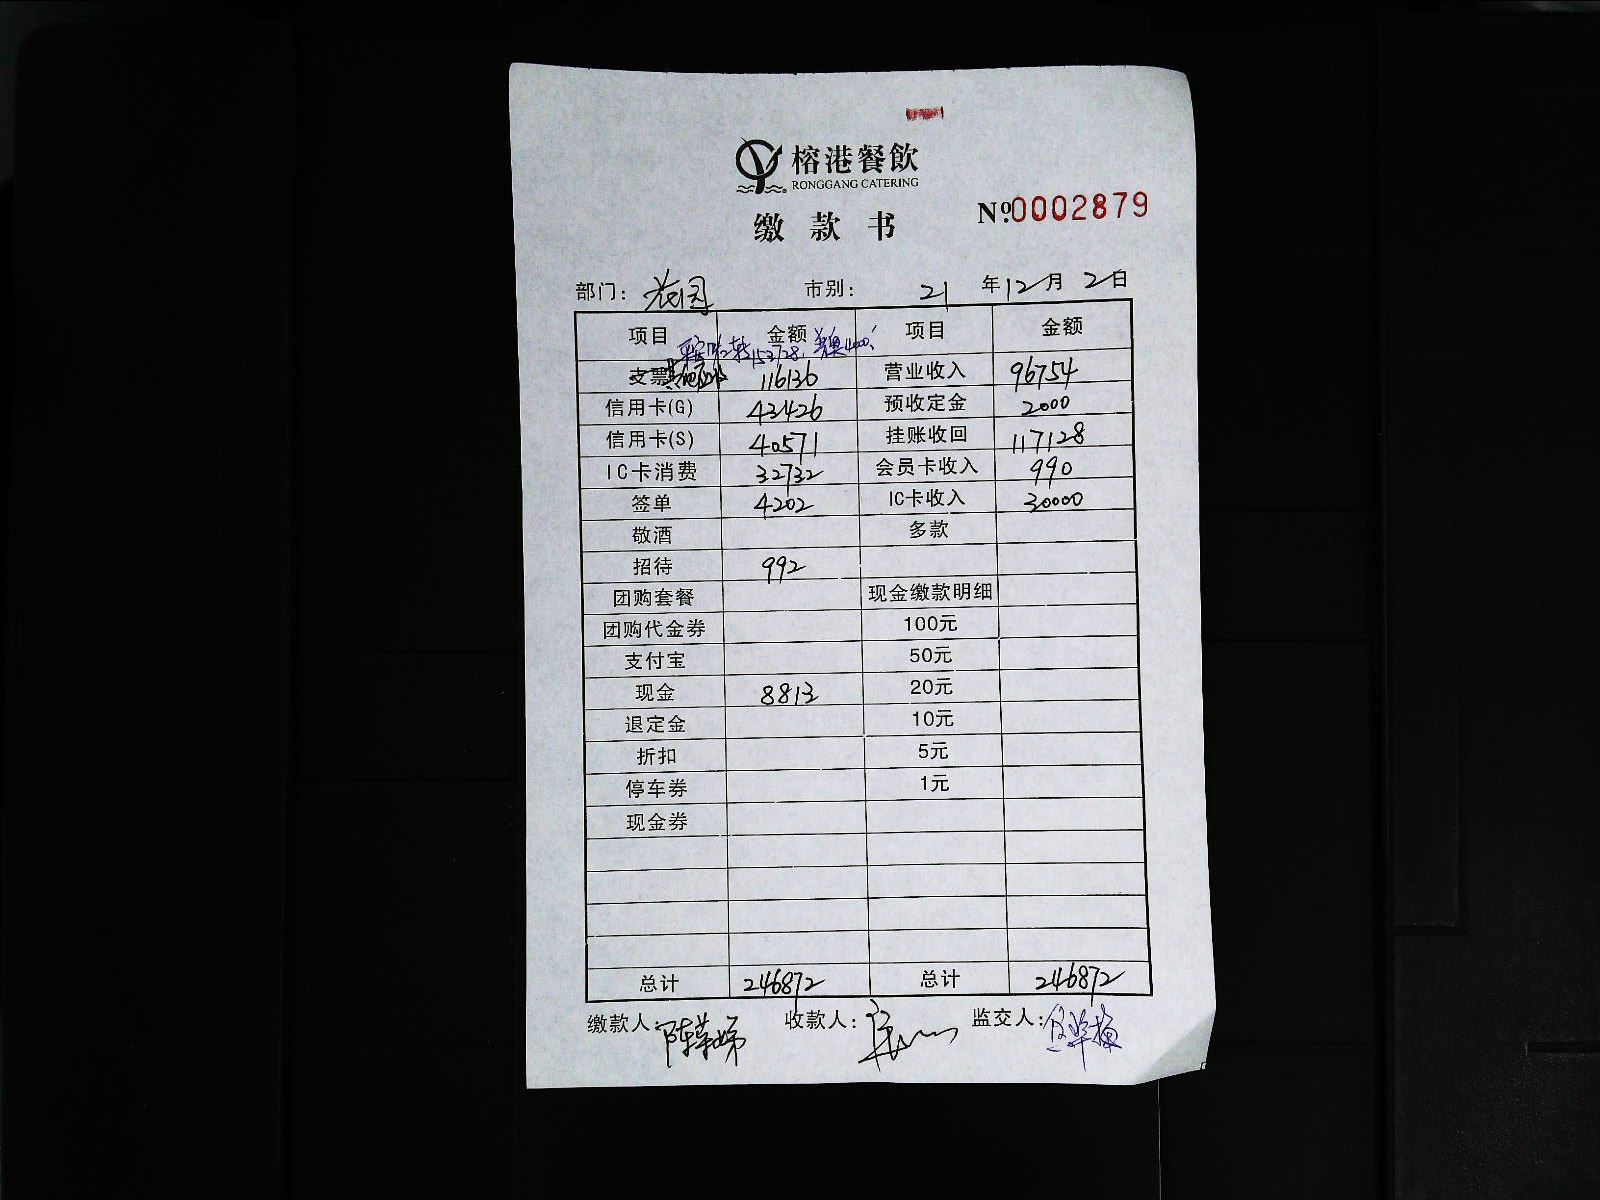 榕港餐飲
RONGGANG CATERING
缴款书 №0002879
部门: 花园 市别: 21 年 12 月 2 日
项目 金额 项目 金额
支票 116136 营业收入 96754
信用卡(G) 43426 预收定金 2000
信用卡(S) 40571 挂账收回 117128
IC卡消费 32732 会员卡收入 990
签单 4202 IC卡收入 30000
敬酒 多款
招待 992
团购套餐 现金缴款明细
团购代金券 100元
支付宝 50元
现金 8813 20元
退定金 10元
折扣 5元
停车券 1元
现金券
总计 246872 总计 246872
缴款人: 收款人: 监交人: